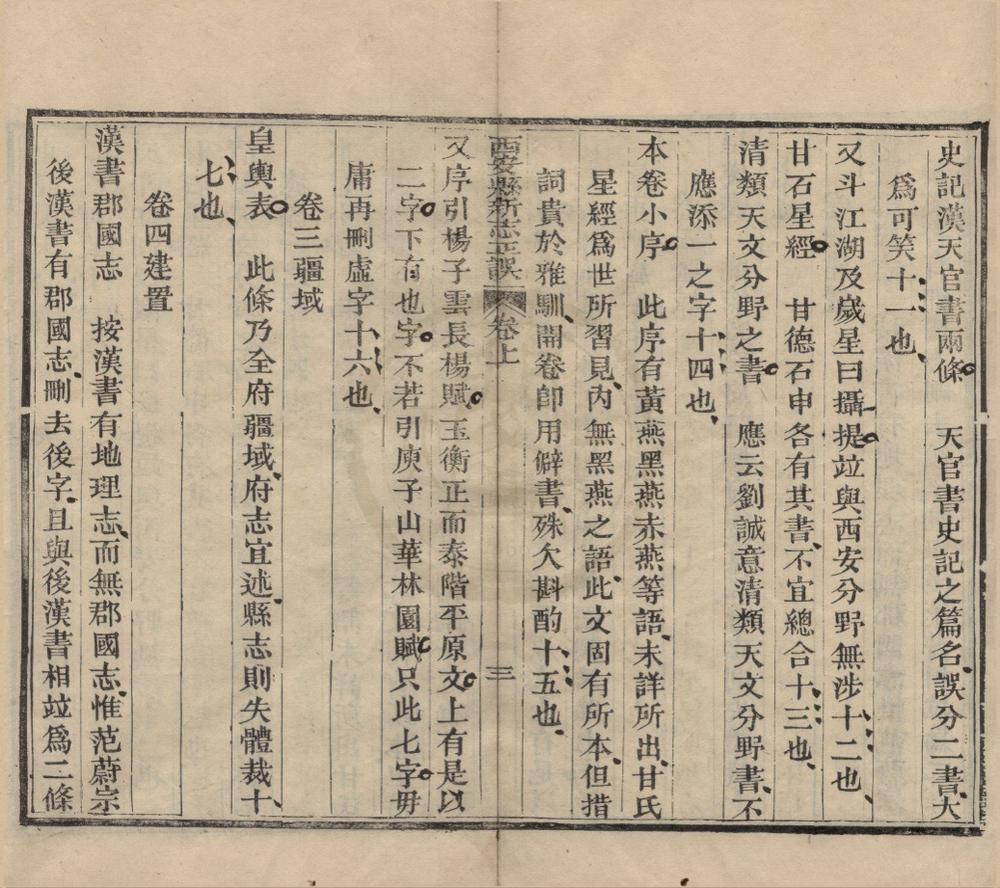 史記漢天官書兩條 天官書史記之篇名誤分二書大
爲可笑十一也
又斗江湖及歲星曰攝提竝與西安分野無涉十二也
甘石星經 甘德石申各有其書不宜總合十三也
清類天文分野之書 應云劉誠意清類天文分野書不
應添一之字十四也
本卷小序 此序有黃燕黑燕赤燕等語未詳所出甘氏
星經爲世所習見內無黑燕之語此文固有所本但措
詞貴於雅馴開卷卽用僻書殊欠斟酌十五也
西安縣新志正誤 卷上 三
又序引楊子雲長楊賦玉衡正而泰階平原文上有是以
二字下有也字不若引庾子山華林園賦只此七字毋
庸再刪虛字十六也
卷三疆域
皇輿表 此條乃全府疆域府志宜述縣志則失體裁十
七也
卷四建置
漢書郡國志 按漢書有地理志而無郡國志惟范蔚宗
後漢書有郡國志刪去後字且與後漢書相竝爲二條